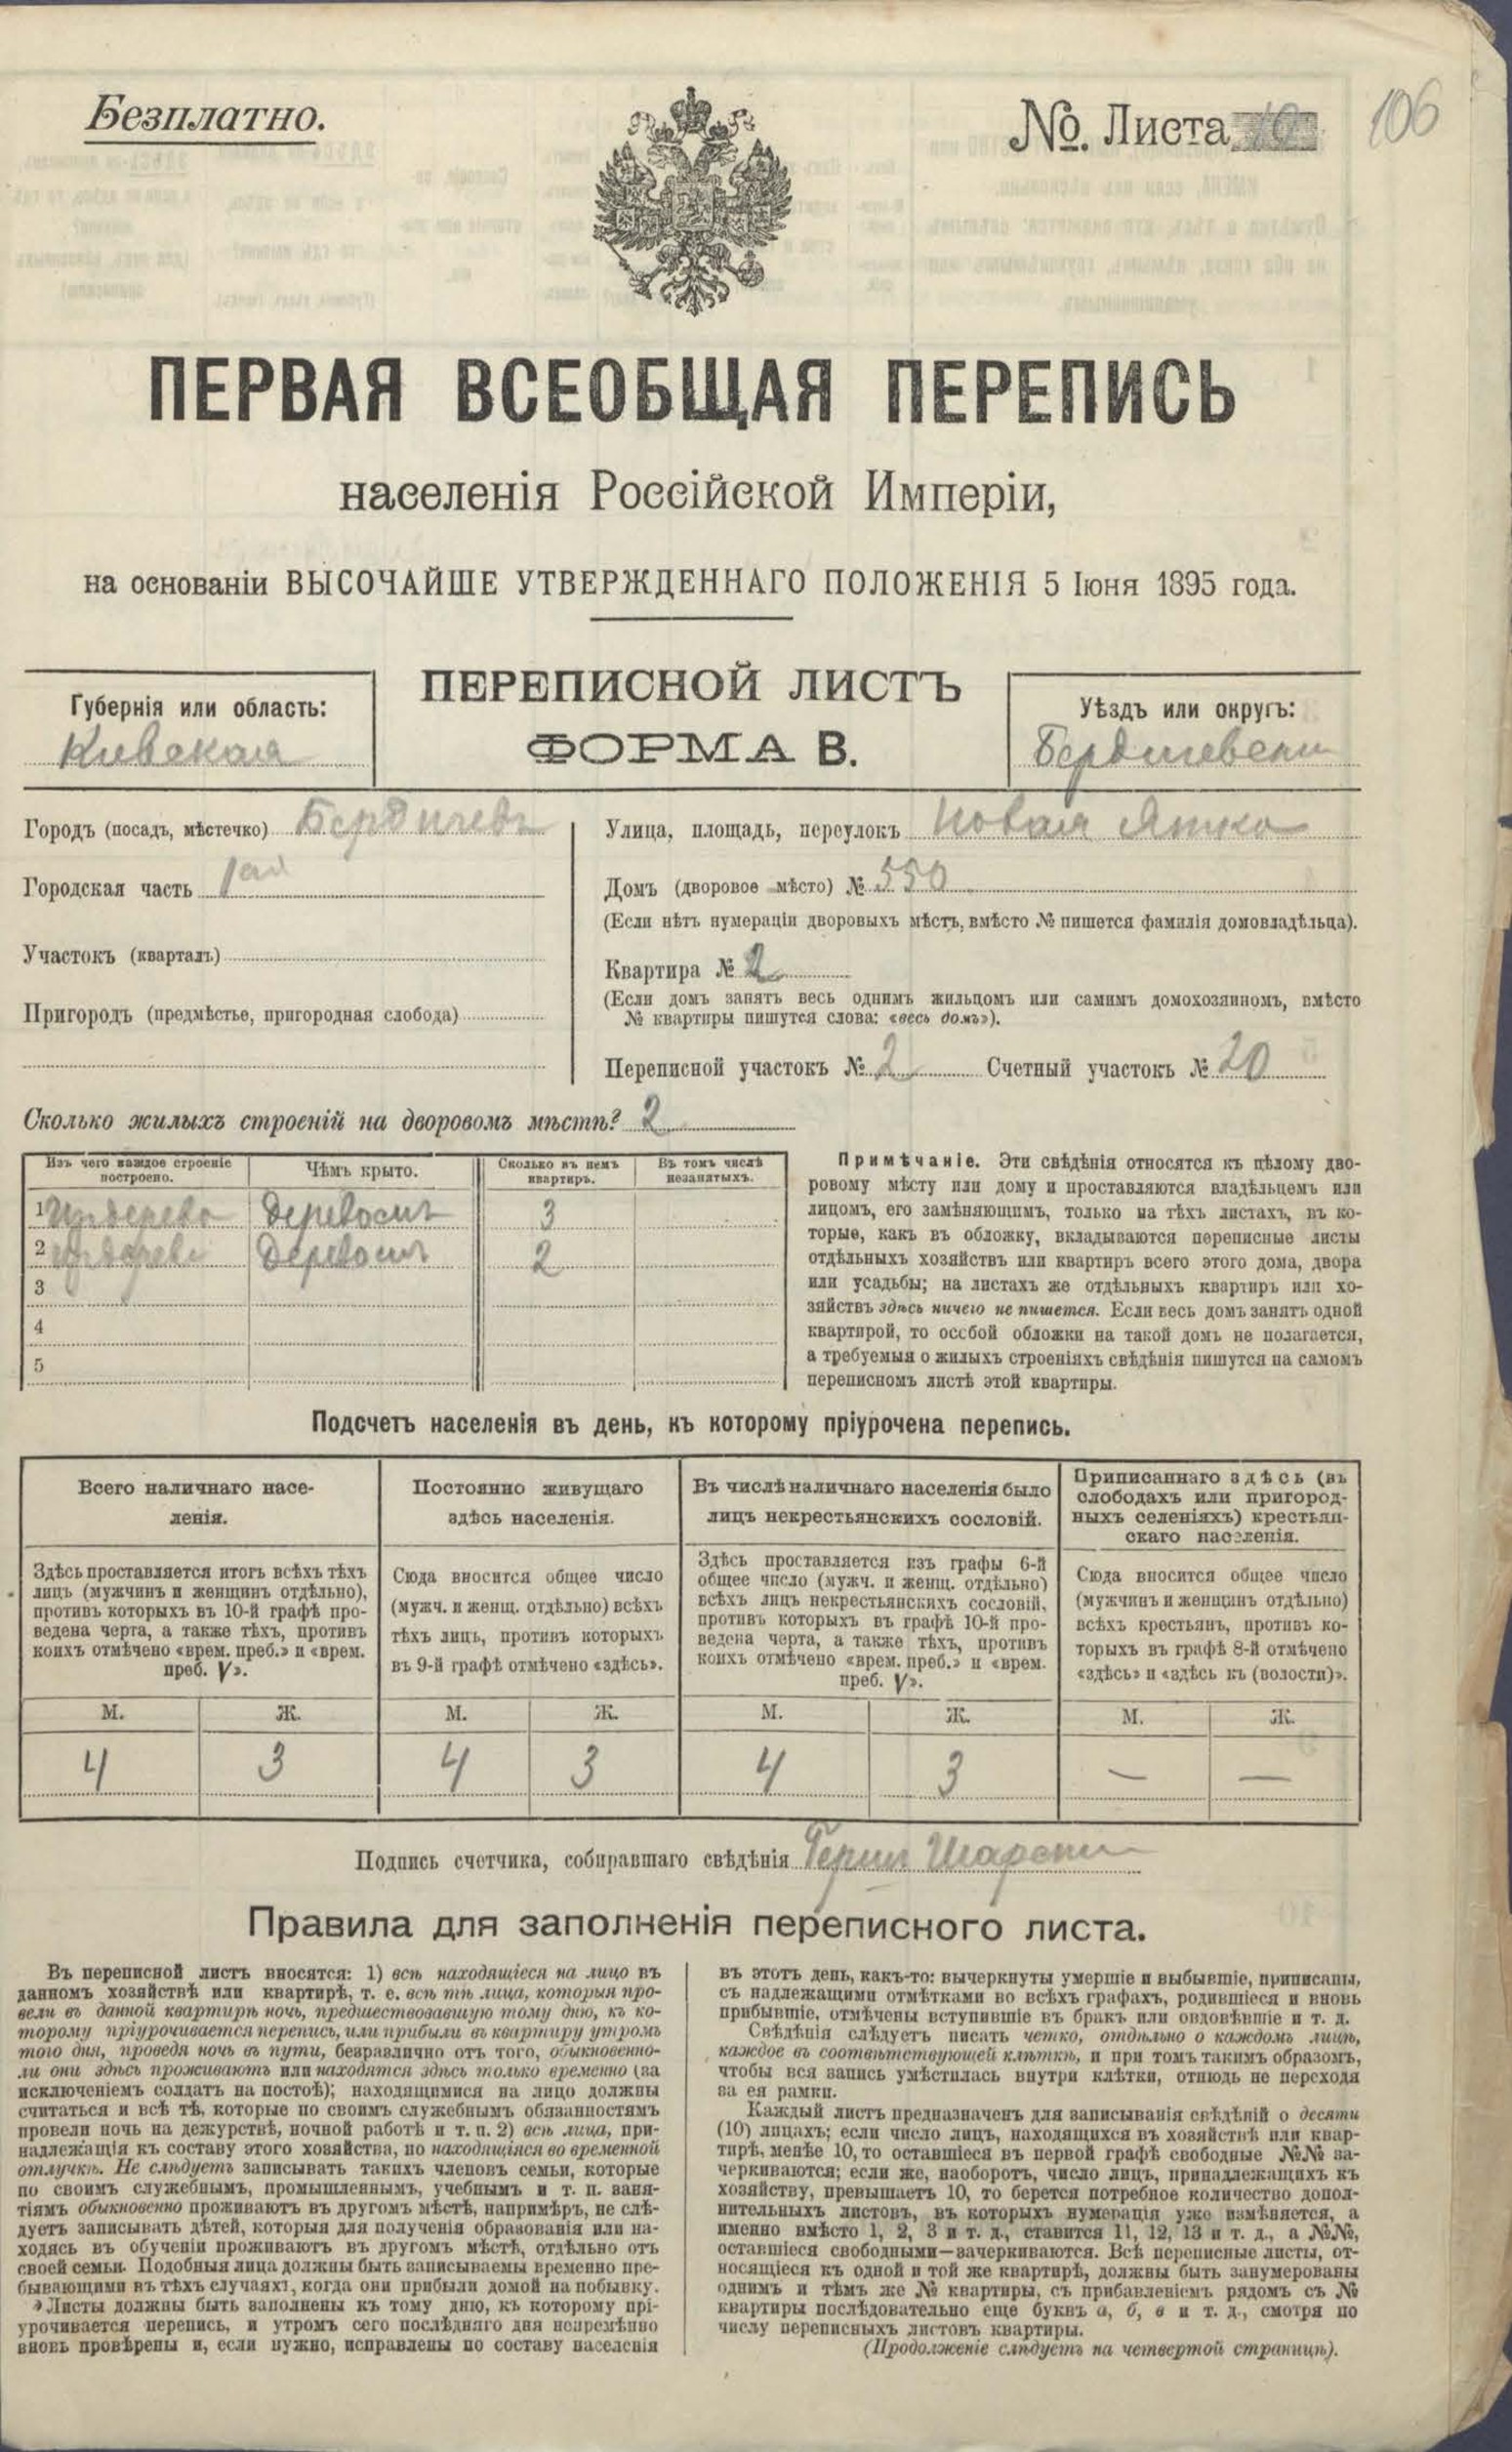 Безплатно.
№. Листа
106
ПЕРВАЯ ВСЕОБЩАЯ ПЕРЕПИСЬ
населенія Россійской Имперіи,
на основаніи ВЫСОЧАЙШЕ УТВЕРЖДЕННАГО ПОЛОЖЕНІЯ 5 Іюня 1895 года.
ПЕРЕПИСНОЙ ЛИСТЪ
ФОРМА В.
Губернія или область:
Киевская
Уѣздъ или округъ:
Городъ (посадъ, мѣстечко) Бердичевъ
Городская часть 1ая
Участокъ (кварталъ)
Пригородъ (предмѣстье, пригородная слобода)
Улица, площадь, переулокъ Новая
Домъ (дворовое мѣсто) № 550
(Если нѣтъ нумераціи дворовыхъ мѣстъ, вмѣсто № пишется фамилія домовладѣльца).
Квартира № 2
(Если домъ занятъ весь однимъ жильцомъ или самимъ домохозяиномъ, вмѣсто
№ квартиры пишутся слова: «весь домъ»).
Переписной участокъ № 2 Счетный участокъ № 20
Сколько жилыхъ строеній на дворовомъ мѣстѣ? 2
Изъ чего каждое строеніе
построено.
Чѣмъ крыто.
Сколько въ немъ
квартиръ.
Въ томъ числѣ
незанятыхъ.
1 3
2 2
3
4
5
Примѣчаніе. Эти свѣдѣнія относятся къ цѣлому дво-
ровому мѣсту или дому и проставляются владѣльцемъ или
лицомъ, его замѣняющимъ, только на тѣхъ листахъ, въ ко-
торые, какъ въ обложку, вкладываются переписные листы
отдѣльныхъ хозяйствъ или квартиръ всего этого дома, двора
или усадьбы; на листахъ же отдѣльныхъ квартиръ или хо-
зяйствъ здѣсь ничего не пишется. Если весь домъ занятъ одной
квартирой, то особой обложки на такой домъ не полагается,
а требуемыя о жилыхъ строеніяхъ свѣдѣнія пишутся на самомъ
переписномъ листѣ этой квартиры.
Подсчетъ населенія въ день, къ которому пріурочена перепись.
Всего наличнаго насе-
ленія.
Здѣсь проставляется итогъ всѣхъ тѣхъ
лицъ (мужчинъ и женщинъ отдѣльно),
противъ которыхъ въ 10-й графѣ про-
ведена черта, а также тѣхъ, противъ
коихъ отмѣчено «врем. преб.» и «врем.
преб. V».
Постоянно живущаго
здѣсь населенія.
Сюда вносится общее число
(мужч. и женщ. отдѣльно) всѣхъ
тѣхъ лицъ, противъ которыхъ
въ 9-й графѣ отмѣчено «здѣсь».
Въ числѣ наличнаго населенія было
лицъ некрестьянскихъ сословій.
Здѣсь проставляется изъ графы 6-й
общее число (мужч. и женщ. отдѣльно)
всѣхъ лицъ некрестьянскихъ сословій,
противъ которыхъ въ графѣ 10-й про-
ведена черта, а также тѣхъ, противъ
коихъ отмѣчено «врем. преб.» и «врем.
преб. V».
Приписаннаго здѣсь (въ
слободахъ или пригород-
ныхъ селеніяхъ) крестьян-
скаго населенія.
Сюда вносится общее число
(мужчинъ и женщинъ отдѣльно)
всѣхъ крестьянъ, противъ ко-
торыхъ въ графѣ 8-й отмѣчено
«здѣсь» и «здѣсь къ (волости)».
М. Ж. М. Ж. М. Ж. М. Ж.
4 3 4 3 4 3 — —
Подпись счетчика, собиравшаго свѣдѣнія
Правила для заполненія переписного листа.
Въ переписной листъ вносятся: 1) всѣ находящіеся на лицо въ
данномъ хозяйствѣ или квартирѣ, т. е. всѣ тѣ лица, которыя про-
вели въ данной квартирѣ ночь, предшествовавшую тому дню, къ ко-
торому пріурочивается перепись, или прибыли въ квартиру утромъ
того дня, проведя ночь въ пути, безразлично отъ того, обыкновенно-
ли они здѣсь проживаютъ или находятся здѣсь только временно (за
исключеніемъ солдатъ на постоѣ); находящимися на лицо должны
считаться и всѣ тѣ, которые по своимъ служебнымъ обязанностямъ
провели ночь на дежурствѣ, ночной работѣ и т. п. 2) всѣ лица, при-
надлежащія къ составу этого хозяйства, но находящіяся во временной
отлучкѣ. Не слѣдуетъ записывать такихъ членовъ семьи, которые
по своимъ служебнымъ, промышленнымъ, учебнымъ и т. п. заня-
тіямъ обыкновенно проживаютъ въ другомъ мѣстѣ, напримѣръ, не слѣ-
дуетъ записывать дѣтей, которыя для полученія образованія или на-
ходясь въ обученіи проживаютъ въ другомъ мѣстѣ, отдѣльно отъ
своей семьи. Подобныя лица должны быть записываемы временно пре-
бывающими въ тѣхъ случаяхъ, когда они прибыли домой на побывку.
Листы должны быть заполнены къ тому дню, къ которому прі-
урочивается перепись, и утромъ сего послѣдняго дня непремѣнно
вновь провѣрены и, если нужно, исправлены по составу населенія
въ этотъ день, какъ-то: вычеркнуты умершіе и выбывшіе, приписаны,
съ надлежащими отмѣтками во всѣхъ графахъ, родившіеся и вновь
прибывшіе, отмѣчены вступившіе въ бракъ или овдовѣвшіе и т. д.
Свѣдѣнія слѣдуетъ писать четко, отдѣльно о каждомъ лицѣ,
каждое въ соотвѣтствующей клѣткѣ, и при томъ такимъ образомъ,
чтобы вся запись умѣстилась внутри клѣтки, отнюдь не переходя
за ея рамки.
Каждый листъ предназначенъ для записыванія свѣдѣній о десяти
(10) лицахъ; если число лицъ, находящихся въ хозяйствѣ или квар-
тирѣ, менѣе 10, то оставшіеся въ первой графѣ свободные №№ за-
черкиваются; если же, наоборотъ, число лицъ, принадлежащихъ къ
хозяйству, превышаетъ 10, то берется потребное количество допол-
нительныхъ листовъ, въ которыхъ нумерація уже измѣняется, а
именно вмѣсто 1, 2, 3 и т. д., ставится 11, 12, 13 и т. д., а №№,
оставшіеся свободными—зачеркиваются. Всѣ переписные листы, от-
носящіеся къ одной и той же квартирѣ, должны быть занумерованы
однимъ и тѣмъ же № квартиры, съ прибавленіемъ рядомъ съ №
квартиры послѣдовательно еще буквъ а, б, в и т. д., смотря по
числу переписныхъ листовъ квартиры.
(Продолженіе слѣдуетъ на четвертой страницѣ).